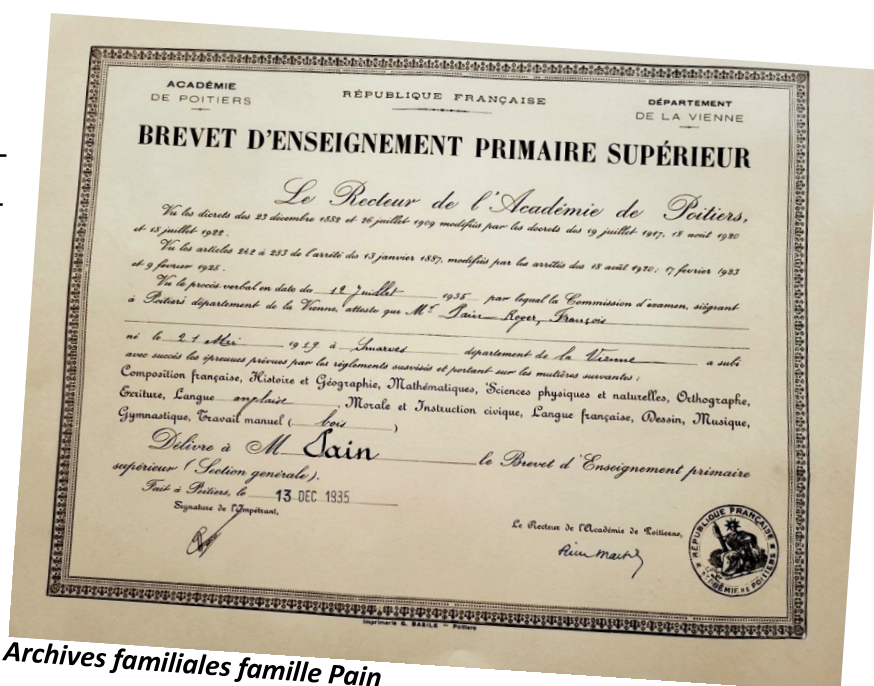 ACADÉMIE
DE POITIERS
RÉPUBLIQUE FRANÇAISE
DÉPARTEMENT
DE LA VIENNE
BREVET D'ENSEIGNEMENT PRIMAIRE SUPÉRIEUR
Le Recteur de l'Académie de Poitiers,
Vu les décrets des 23 décembre 1882 et 26 juillet 1909 modifiés par les décrets des 19 juillet 1917, 18 août 1920
et 15 juillet 1922.
Vu les articles 242 à 253 de l'arrêté du 13 janvier 1887, modifiés par les arrêtés des 18 août 1920; 17 février 1923
et 9 février 1925.
Vu le procès verbal en date du 12 Juillet 1935 par lequel la Commission d'examen, siégeant
à Poitiers département de la Vienne, atteste que Mr Pain Roger, François
né le 21 Mai 1919 à Smarves département de la Vienne a subi
avec succès les épreuves prévues par les règlements susvisés et portant sur les matières suivantes :
Composition française, Histoire et Géographie, Mathématiques, Sciences physiques et naturelles, Orthographe,
Ecriture, Langue anglaise, Morale et Instruction civique, Langue française, Dessin, Musique,
Gymnastique, Travail manuel ( bois )
Délivre à M Pain le Brevet d'Enseignement primaire
supérieur (Section générale).
Fait à Poitiers, le 13 DEC 1935
Signature de l'Impétrant,
Le Recteur de l'Académie de Poitiers,
RÉPUBLIQUE FRANÇAISE
ACADÉMIE DE POITIERS
Imprimerie G. BASILE - Poitiers
Archives familiales famille Pain